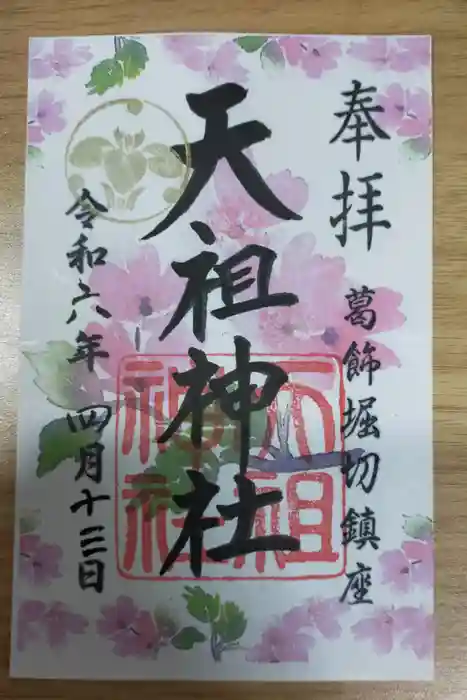 奉拝
葛飾堀切鎮座
天祖神社
天祖神社
令和六年 四月十三日